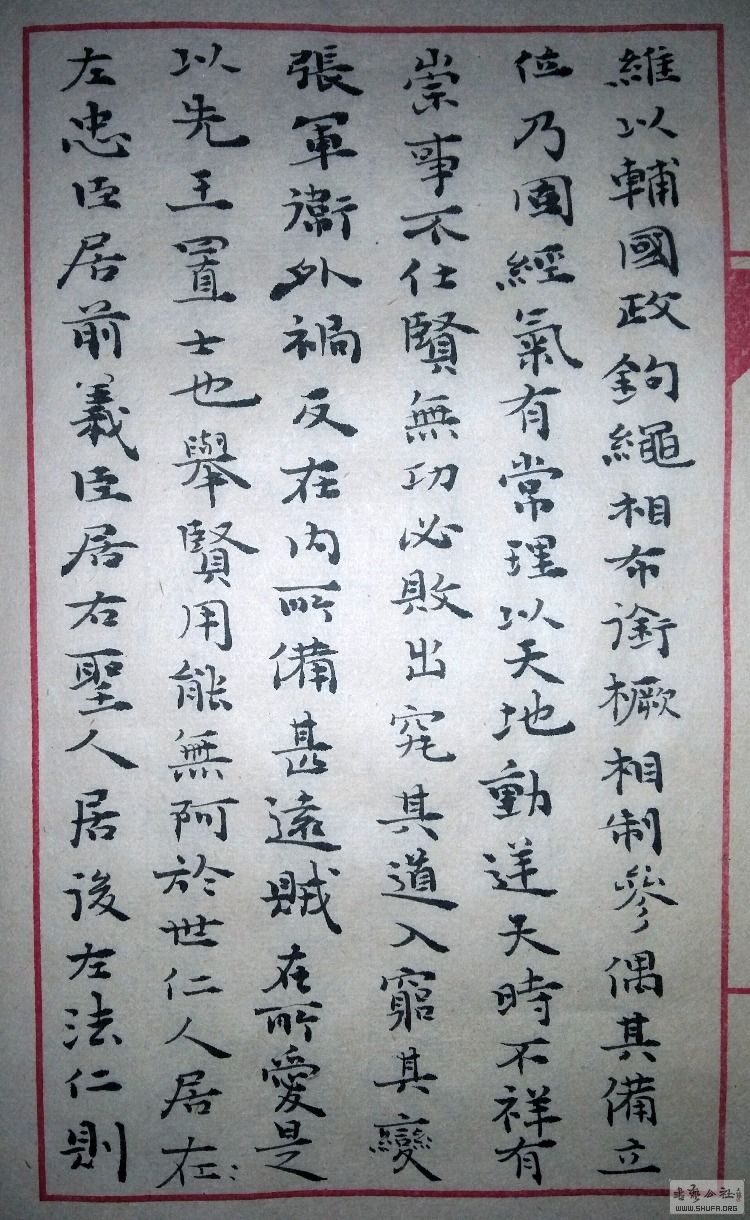 維以輔國政鉤繩相布銜橛相制參偶其備立
位乃固經氣有常理以天地動逆天時不祥有
祟事不仕賢無功必敗出究其道入窮其變
張軍衛外禍反在內所備甚遠賊在所愛是
以先王置士也舉賢用能無阿於世仁人居在：
左忠臣居前義臣居右聖人居後左法仁則
书艺公社
WWW.SHUFA.ORG